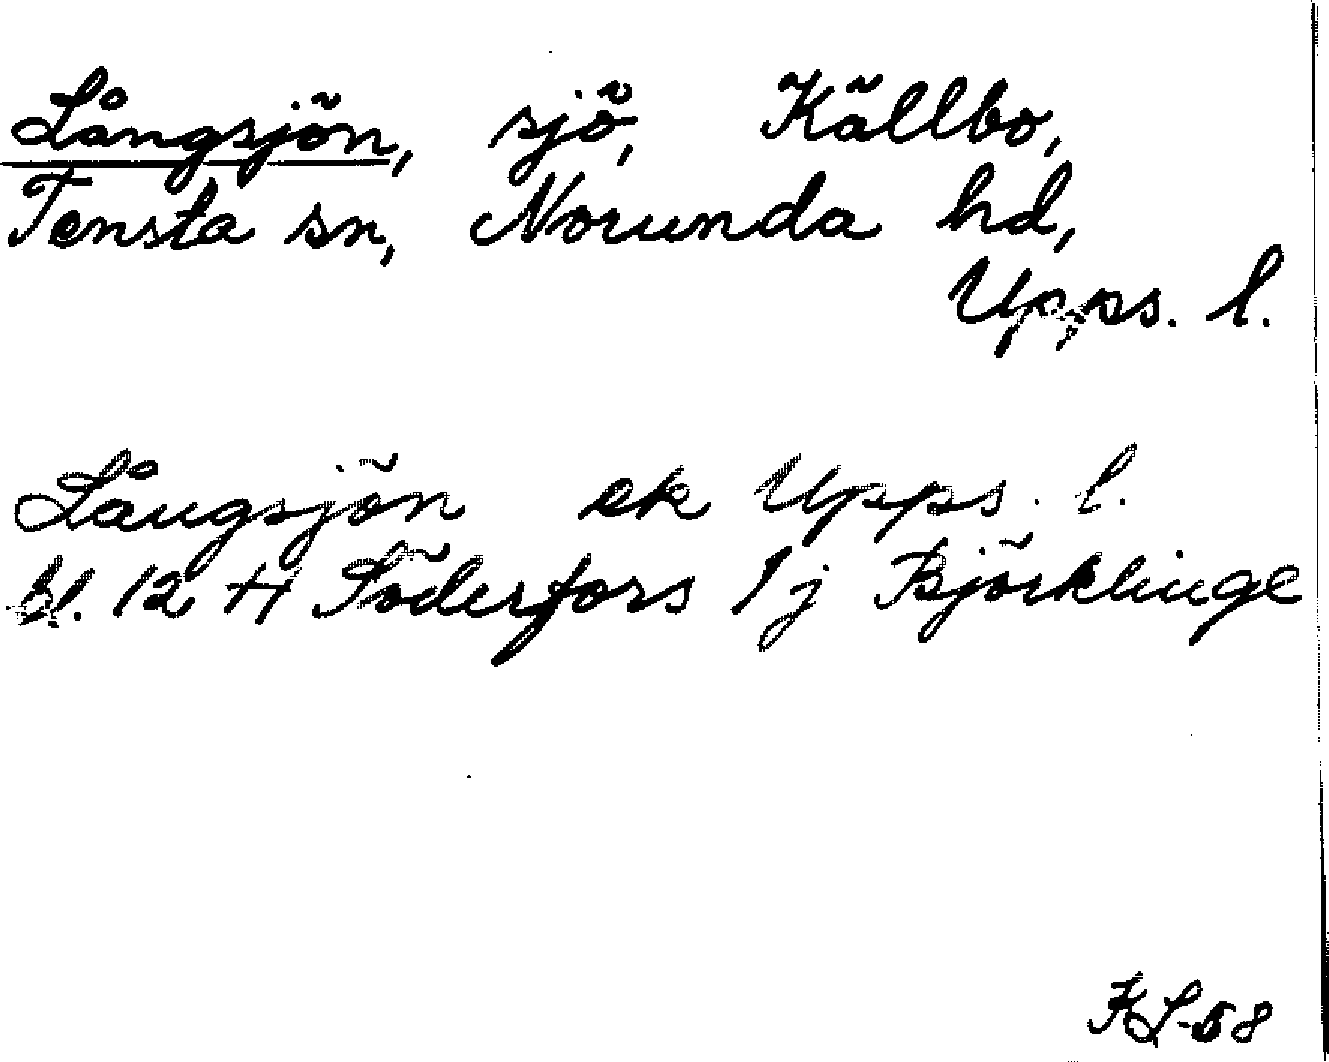 Långsjön, sjö, Källbo,
Tensta sn, Norunda hd,
Upps. l.
Långsjön ek Upps. l.
bl. 12 H Söderfors 1j Björklinge
KL-58